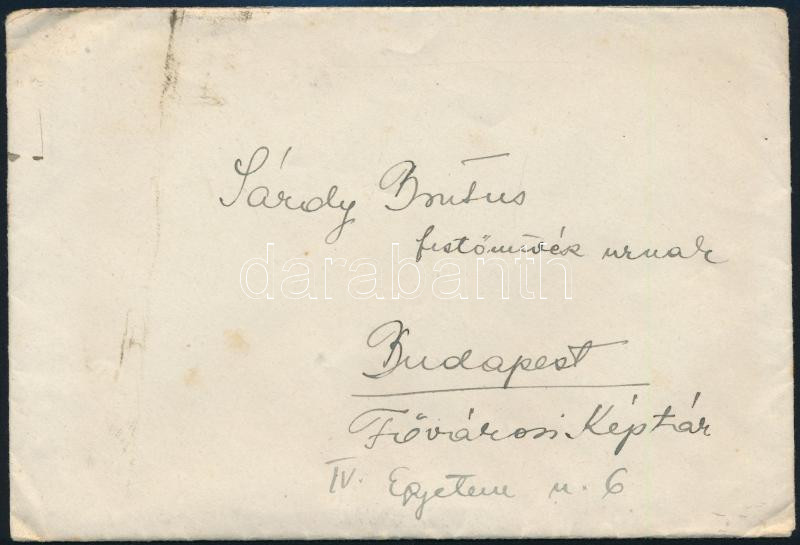 Sárdy Brutus
festőművész urnak
darabanth
Budapest
Fővárosi Képtár
IV. Egyetem u. 6